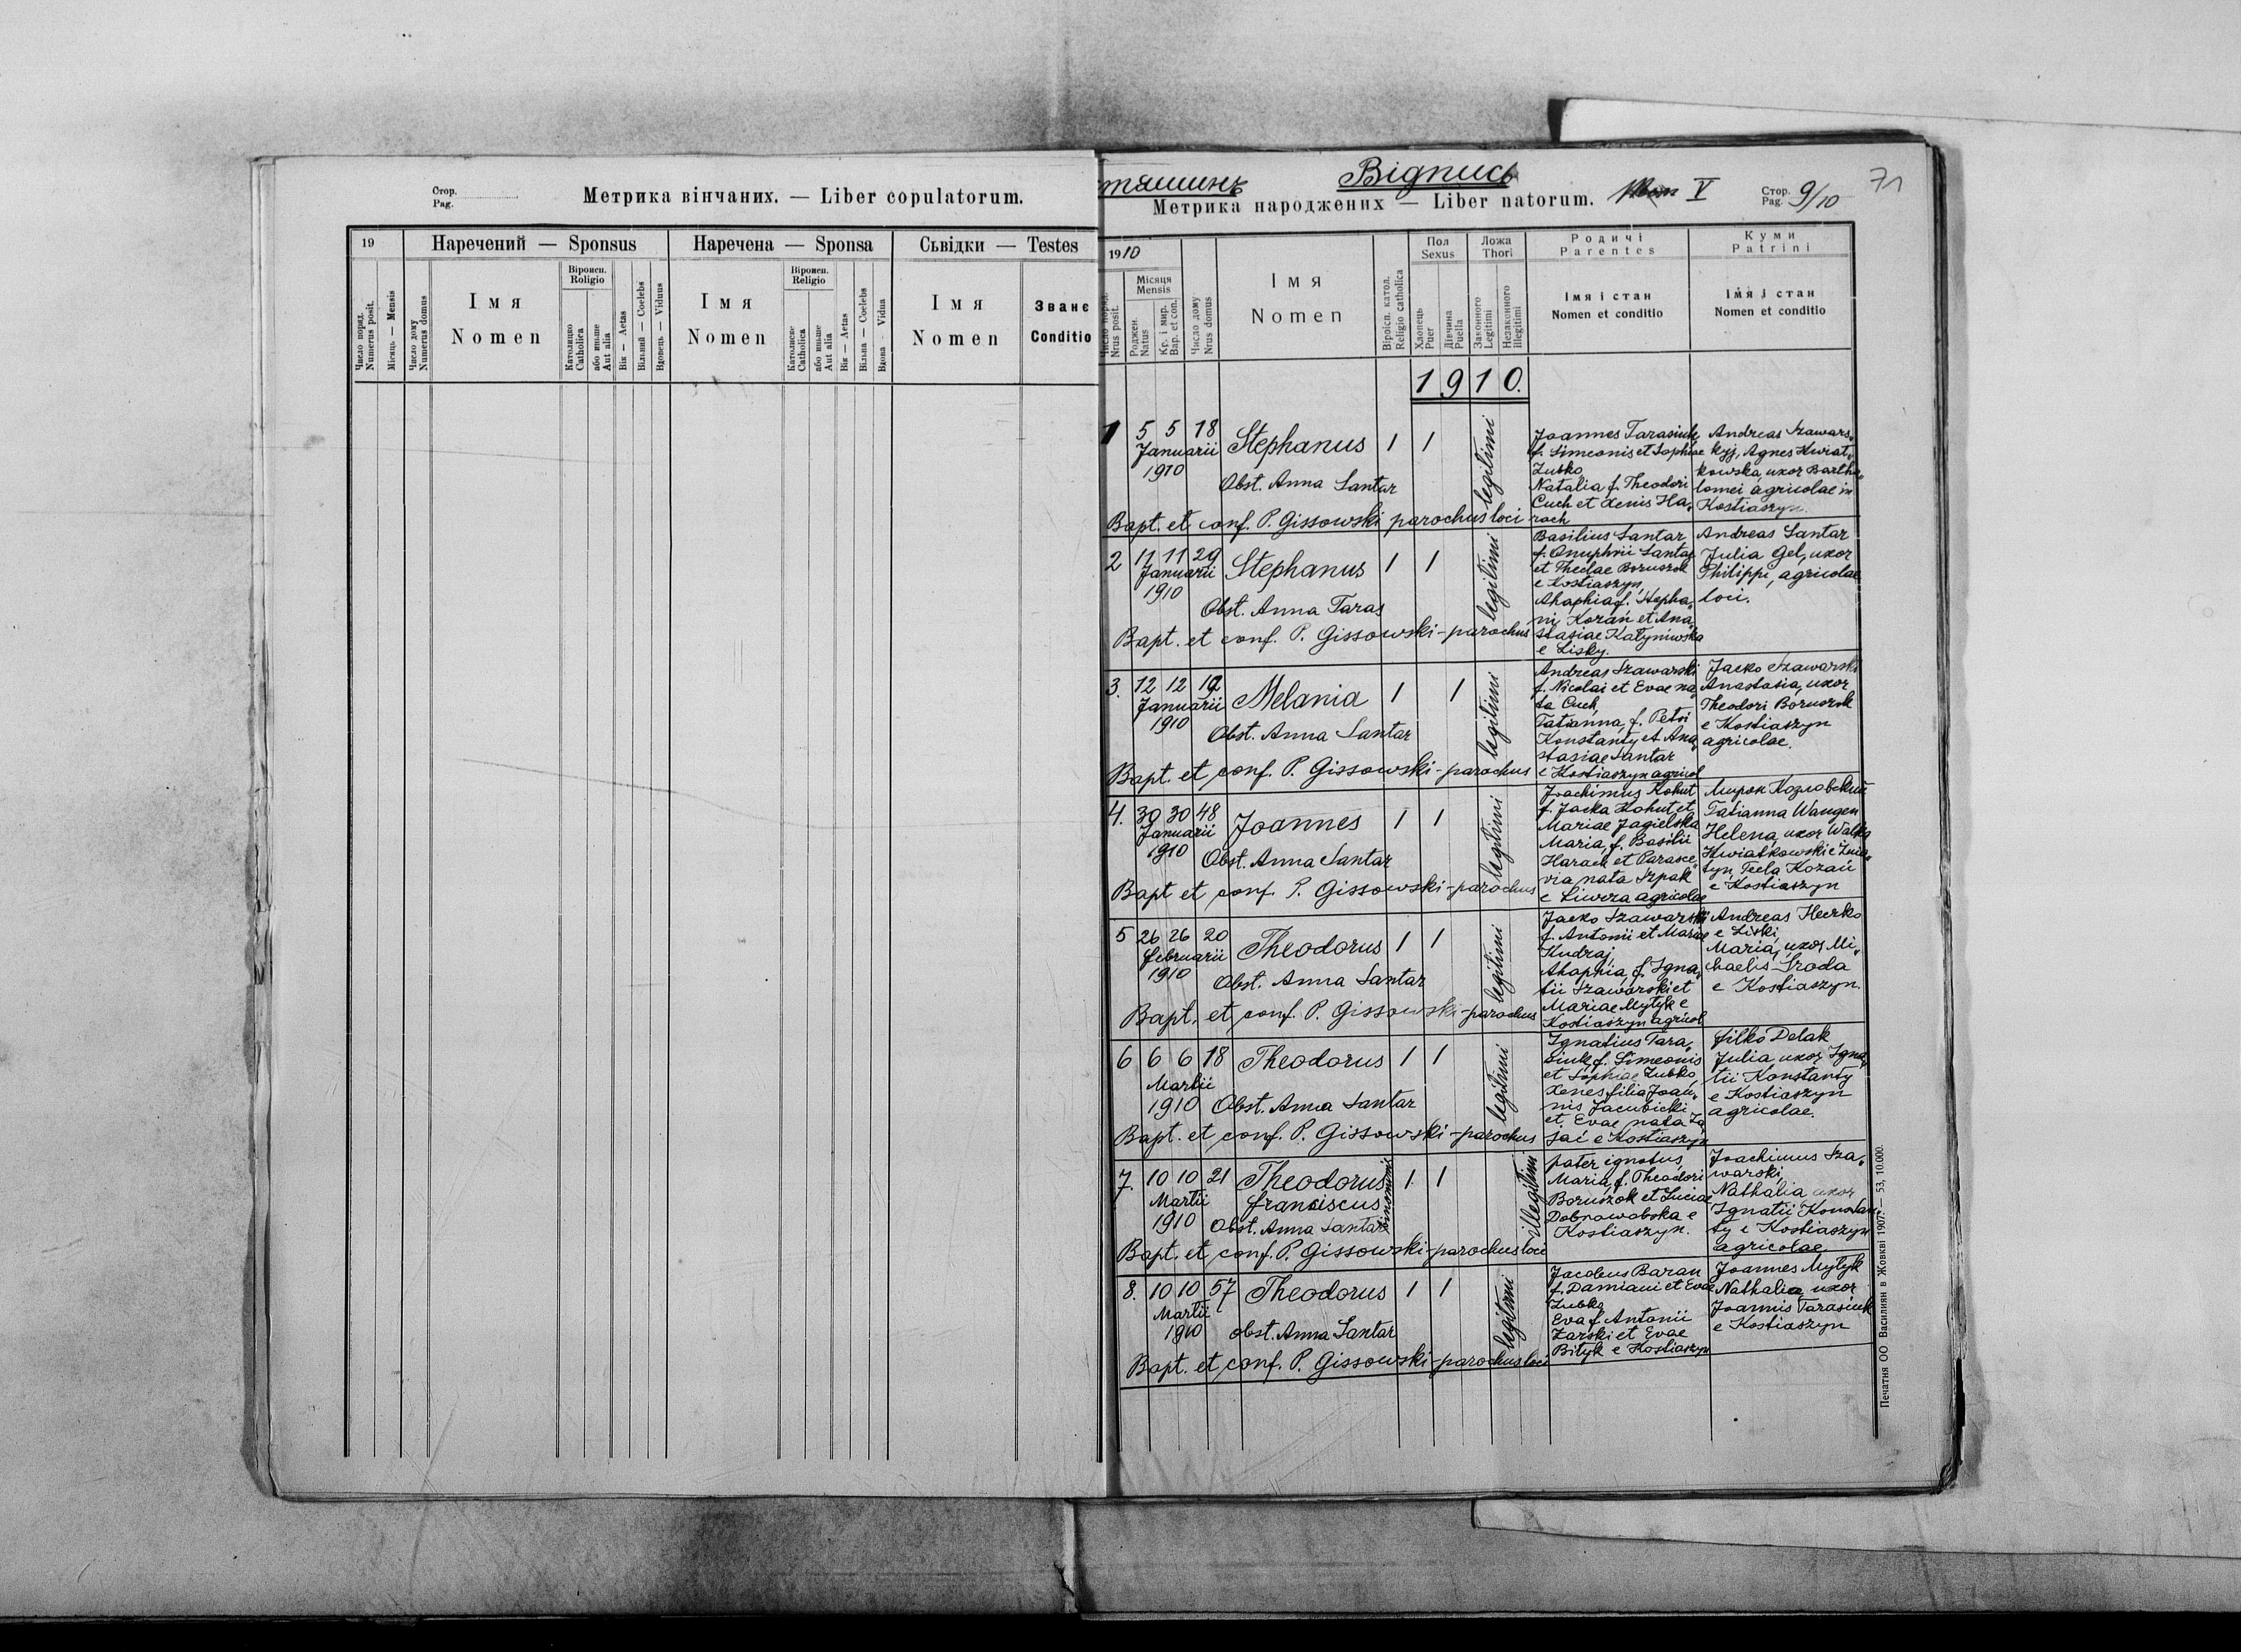 Стор.
Pag.
Метрика вінчаних. — Liber copulatorum.
19
Наречений — Sponsus
Наречена — Sponsa
Сьвідки — Testes
Число поряд.
Numerus posit.
Місяць — Mensis
Число дому
Numerus domus
Імя
Nomen
Віроисп.
Religio
Католицко
Catholica
або иньше
Aut alia
Вік — Aetas
Вільний — Coelebs
Вдовець — Viduus
Імя
Nomen
Віроисп.
Religio
Католиске
Catholica
або иньше
Aut alia
Вік — Aetas
Вільна — Coelebs
Вдова - Vidua
Імя
Nomen
Званє
Conditio
тяшинъ
Відпись
71
Метрика народжених — Liber natorum. V
Стор.
Pag. 9/10
1910
Число поряд.
Nrus posit.
Місяця
Mensis
Роджен.
Natus
Кр. і мир.
Bap. et con.
Число дому
Nrus domus
Імя
Nomen
Віроісп. катол.
Religio catholica
Пол
Sexus
Хлопець
Puer
Дівчина
Puella
Ложа
Thori
Законного
Legitimi
Незаконного
illegitimi
Родичі
Parentes
Імя і стан
Nomen et conditio
Куми
Patrini
Імя і стан
Nomen et conditio
1910.
1 5 5 18 Stephanus 1 1 legitimi
Januarii
1910
Obst. Anna Santar
Bapt. et conf. P. Gissowski parochus loci
Joannes Tarasiuk
f. Simeonis et Sophiae
Zubko
Natalia f. Theodori
Cuch et Xenis Ha„
rach
Andreas Szawars„
kyj, Agnes Kwiat„
kowska, uxor Bartho„
lomei agricolae in
Kostiaszyn.
2 11 11 29 Stephanus 1 1 legitimi
Januarii
1910
Obst. Anna Taras
Bapt. et conf. P. Gissowski - parochus
Basilius Santar
f. Onuphrii Santar
et Theclae Boruszok
e Kostiaszyn,
Ahaphia f. Stepha„
ni Kozań et Ana„
stasiae Katyniwska
e Lisky.
Andreas Santar
Julia Gel, uxor
Philippi, agricolae
loci.
3. 12 12 19 Melania 1 1 legitimi
Januarii
1910
Obst. Anna Santar
Bapt. et conf. P. Gissowski - parochus
Andreas Szawarski
f. Nicolai et Evae na„
ta Cuch,
Tatianna, f. Petri
Konstanty et Ana„
stasiae Santar
e Kostiaszyn agricol
Jacko Szawarski
Anastasia, uxor
Theodori Boruszok
e Kostiaszyn
agricolae.
4. 30 30 48 Joannes 1 1 legitimi
Januarii
1910
Obst. Anna Santar
Bapt et conf. P. Gissowski - parochus
Joachimus Kohut
f. Jacka Kohut et
Mariae Jagielska
Maria, f. Basilii
Harach et Parasce„
via nata Szpak
e Liwcza agricolae
Мирон Козловский
Tatianna Waugen
Helena, uxor Walka
Kwiatkowski e Żnia„
tyn, Tecla Kozań
e Kostiaszyn
5 26 26 20 Theodorus 1 1 legitimi
februarii
1910
Obst. Anna Santar
Bapt. et conf. P. Gissowski - parochus
Jacko Szawarski
f. Antonii et Mariae
Kudraj,
Ahaphia, f. Igna„
tii Szawarski et
Mariae Mytyk e
Kostiaszyn agricol
Andreas Hecrko
e Liski,
Maria, uxor Mi„
chaelis Środa
e Kostiaszyn.
6 6 6 18 Theodorus 1 1 legitimi
Martii
1910
Obst. Anna Santar
Bapt. et conf. P. Gissowski - parochus
Ignatius Tara„
siuk, f. Simeonis
et Sophiae Zubko,
Xenes filia Joan„
nis Jacubicki
et Evae nata Za„
jać e Kostiaszyn
filko Delak
Julia uxor Igna„
tii Konstanty
e Kostiaszyn
agricolae.
7. 10 10 21 Theodorus 1. 1 illegitimi
Martii franciscus binomini
1910
Obst. Anna Santar
Bapt. et conf. P. Gissowski - parochus loci
pater ignotus,
Maria, f. Theodori
Boruszok et Luciae
Dobrowolska e
Kostiaszyn.
Joachimus Sza„
warski,
Nathalia uxor
Ignatii Konstan„
ty e Kostiaszyn
agricolae.
8. 10 10 57 Theodorus 1 1 legitimi
Martii
1910
obst. Anna Santar
Bapt. et conf. P. Gissowski - parochus loci
Jacobus Baran
f. Damiani et Evae
Zubko
Eva f. Antonii
Żarski et Evae
Bityk e Kostiaszyn
Joannes Mytyk
Nathalia uxor
Joannis Tarasiuk
e Kostiaszyn
Печатня ОО Василиян в Жовкві 1907. — 53, 10.000.